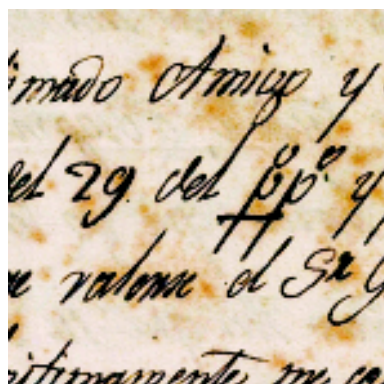 imado Amigo y
del 29. del pº pº y
valerme el Sr G
itimamente me co